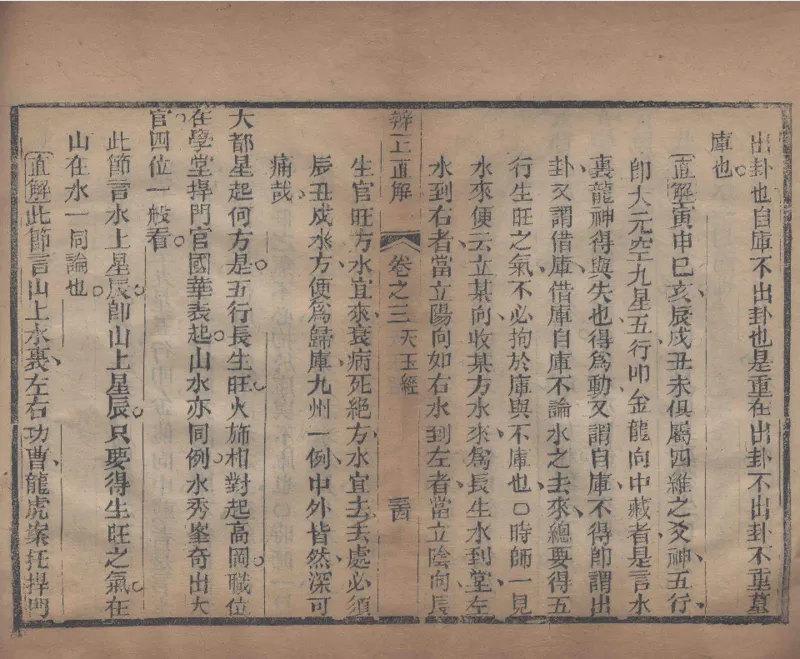 出卦也自庫不出卦也是重在出卦不出卦不重墓
庫也
直解寅申巳亥辰戌丑未俱屬四維之爻神五行
卽大元空九星五行叩金龍向中藏者是言水
裏龍神得與失也得爲動又謂自庫不得卽謂出
卦又謂借庫借庫自庫不論水之去來總要得五
行生旺之氣不必拘於庫與不庫也〇時師一見
水來便云立某向收某方水來爲長生水到堂左
水到右者當立陽向如右水到左者當立陰向長
辨正直解 卷之三 天玉經 三四
生官旺方水宜來衰病死絕方水宜去去處必須
辰丑戌水方便爲歸庫九州一例中外皆然深可
痛哉
大都星起何方是五行長生旺火旆相對起高岡職位
在學堂捍門官國華表起山水亦同例水秀峯奇出大
官四位一般看
此節言水上星辰卽山上星辰只要得生旺之氣在
山在水一同論也
直解此節言山上水裏左右功曹龍虎案托捍門